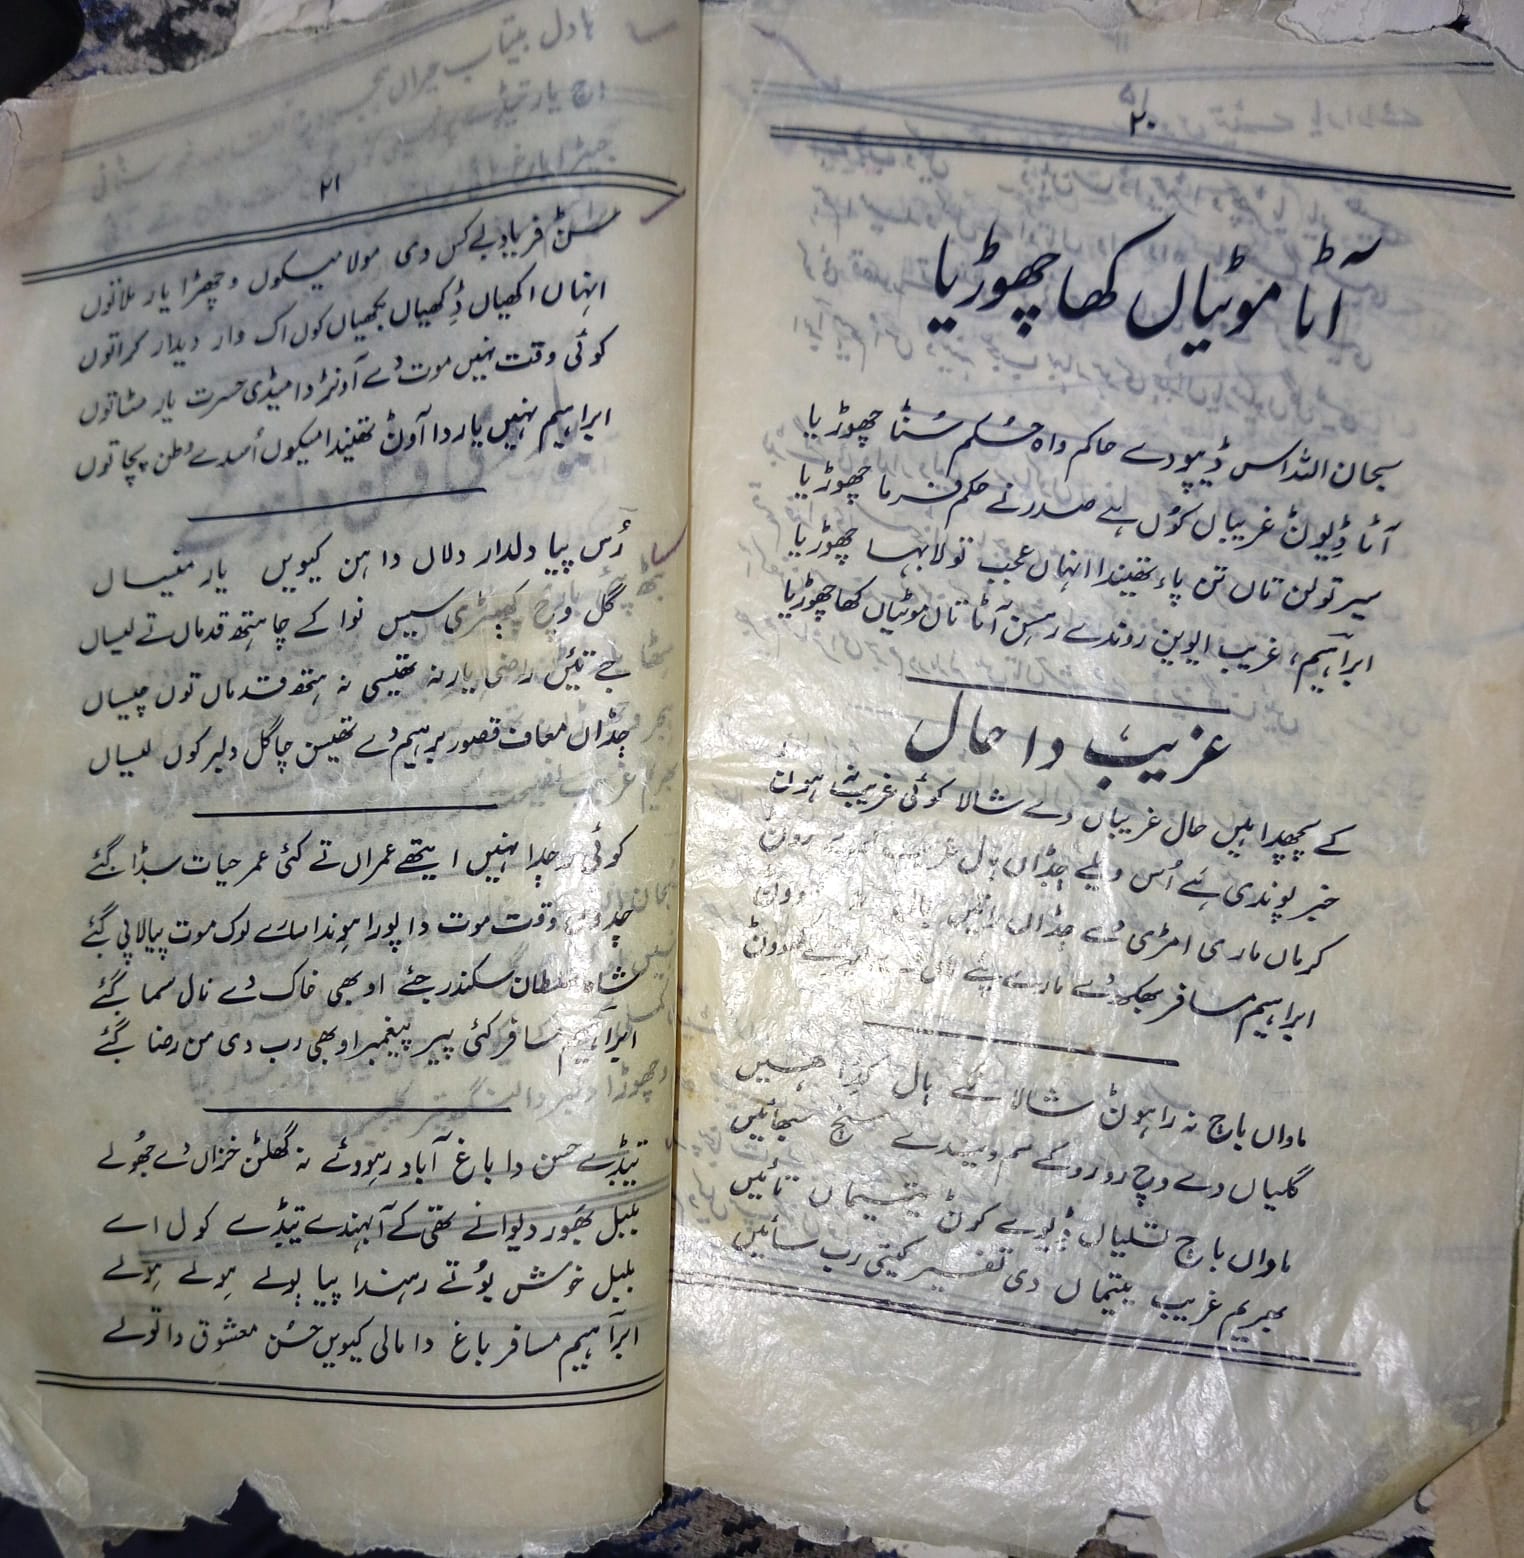 ۲۰
آٹا موٹیاں کھا چھوڑیا
سبحان اللہ اس ڈیپو دے حاکم واہ حُکم سُنا چھوڑیا
آٹا ڈیون غریباں کوں ہے صدر نے حکم فرما چھوڑیا
سیر تولن تاں تن پاء تھیندا انہاں عجب تولا بہا چھوڑیا
ابراہیم، غریب ایویں روندے رہسن آٹا تاں موٹیاں کھا چھوڑیا
غریب دا حال
کے پچھدا ہیں حال غریباں دے شالا کوئی غریب نہ ہوون
خبر پوندی ہے اُس ویلے جڈاں بال روون
کرماں ماری امڑی دے جڈاں
ابراہیم مسافر بھکھ دے مارے
ماواں باج نہ راہون شالا کے بال
گلیاں دے وچ رو رو کے سنج صبحائیں
ماواں باج تسلیاں ڈیوے کون یتیماں تائیں
بھریم غریب یتیماں دی تفسیر کیتی رب سائیں
۲۱
سن فریاد بے کس دی مولا میکوں وچھڑا یار ملا توں
انہاں اکھیاں ڈکھیاں بکھیاں کوں اک وار دیدار کرا توں
کوئی وقت نہیں موت دے آونڑ دا میڈی حسرت یار مٹا توں
ابراہیم نہیں یار دا آون تھیندا میکوں اُسدے وطن پچا توں
رُس پیا دلدار دلاں دا ہن کیویں یار منیساں
گل وچ کپڑی سیس نوا کے چا ہتھ قدماں تے لیساں
جے تئیں راضی یار نہ تھیسی نہ ہتھ قدماں توں چیساں
جڈاں معاف قصور بریہم دے تھیسن چا گل دلبر کوں لیساں
کوئی رجدا نہیں ایتھے عمراں تے کئی عمر حیات سڈا گئے
جڈوں وقت موت دا پورا ہوندا سارے لوک موت پیالا پی گئے
شاہ سلطان سکندر جئے او بھی خاک دے نال سما گئے
ابراہیم مسافر کئی پیر پیغمبر او بھی رب دی من رضا گئے
تیڈے حسن دا باغ آباد رہووئے نہ گھلن خزاں دے جھولے
بلبل بھور دیوانے تھی کے آ بہندے تیڈے کول اے
بلبل خوش بو تے رہندا پیا بولے ہولے ہولے
ابراہیم مسافر باغ دا مالی کیویں حُسن معشوق دا تولے